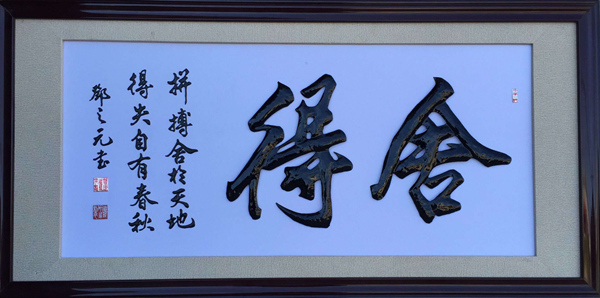 舍得
拼搏舍於天地
得失自有春秋
鄧之元書